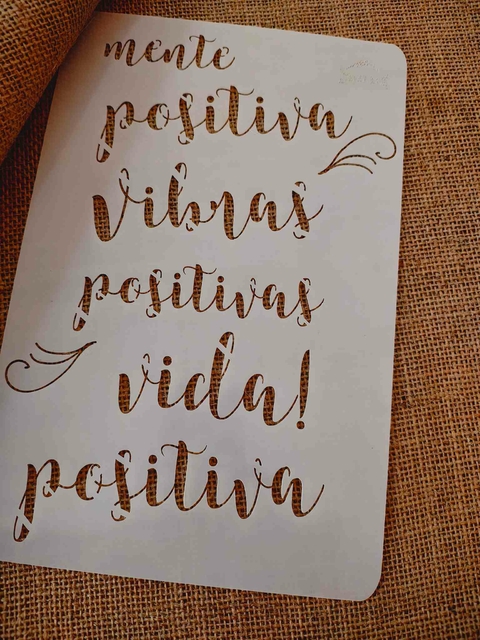 mente
positiva
vibras
positivas
vida!
positiva